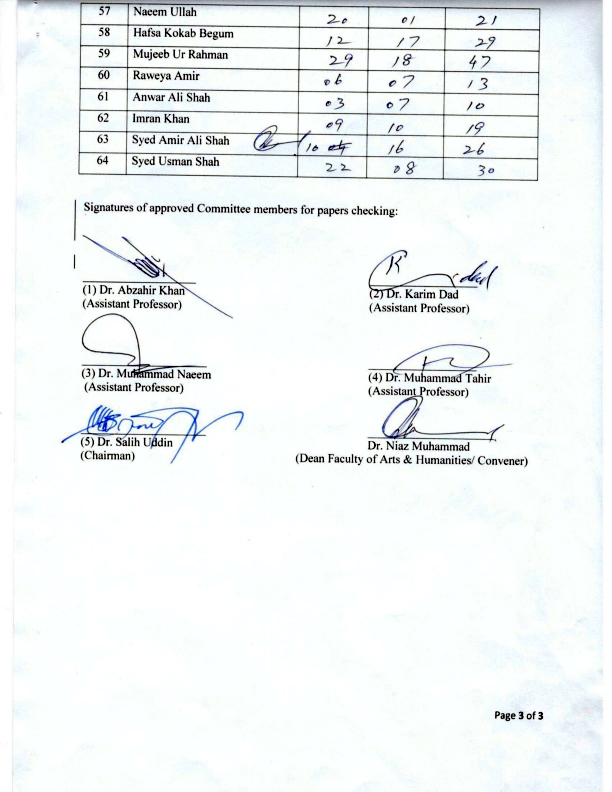 57 Naeem Ullah 20 01 21
58 Hafsa Kokab Begum 12 17 29
59 Mujeeb Ur Rahman 29 18 47
60 Raweya Amir 06 07 13
61 Anwar Ali Shah 03 07 10
62 Imran Khan 09 10 19
63 Syed Amir Ali Shah 10 16 26
64 Syed Usman Shah 22 08 30
Signatures of approved Committee members for papers checking:
(1) Dr. Abzahir Khan
(Assistant Professor)
(2) Dr. Karim Dad
(Assistant Professor)
(3) Dr. Muhammad Naeem
(Assistant Professor)
(4) Dr. Muhammad Tahir
(Assistant Professor)
(5) Dr. Salih Uddin
(Chairman)
Dr. Niaz Muhammad
(Dean Faculty of Arts & Humanities/ Convener)
Page 3 of 3